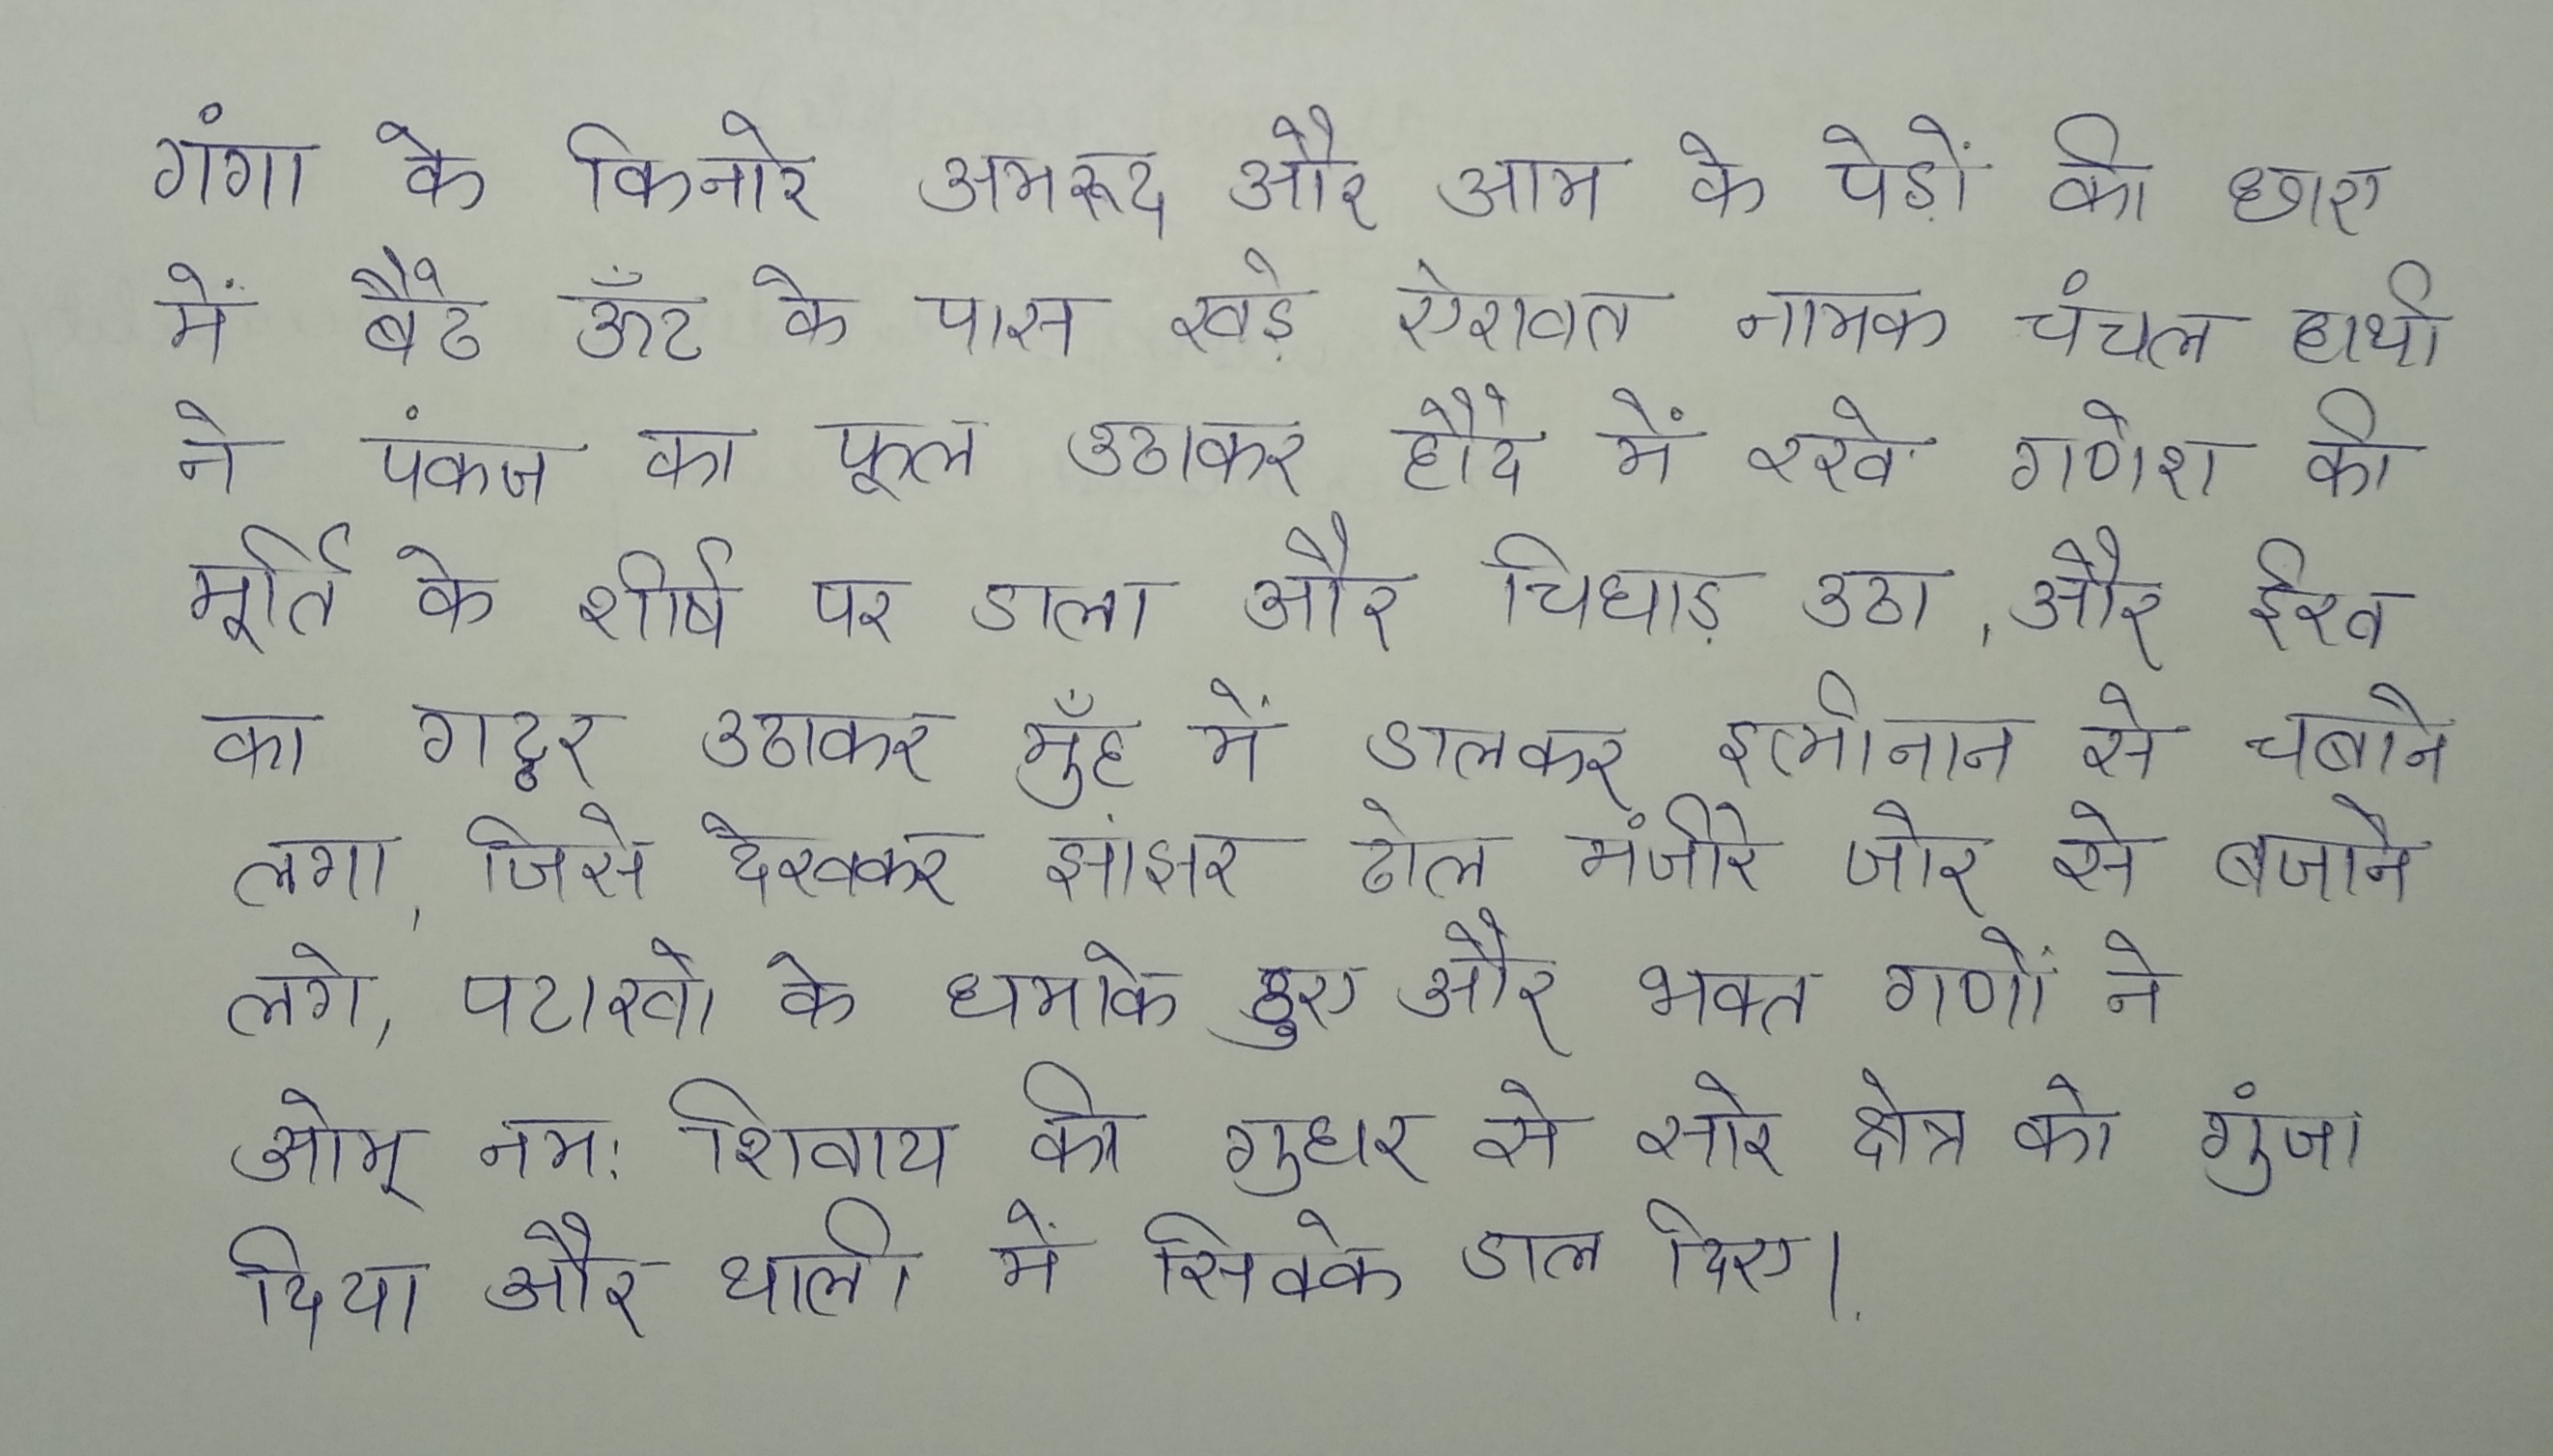 गंगा के किनारे अमरूद और आम के पेड़ों की छाए
में बैठे ऊँट के पास खड़े ऐरावत नामक चंचल हाथी
ने पंकज का फूल उठाकर हौदे में रखे गणेश की
मूर्ति के शीर्ष पर डाला और चिघाड़ उठा, और ईख
का गट्ठर उठाकर मुँह में डालकर इत्मीनान से चबाने
लगा, जिसे देखकर झांझर ढोल मंजीरे जोर से बजाने
लगे, पटाखो के धमाके हुए और भक्त गणों ने
ओम् नमः शिवाय की गुधर से सारे क्षेत्र को गुंजा
दिया और थाली में सिक्के डाल दिए।